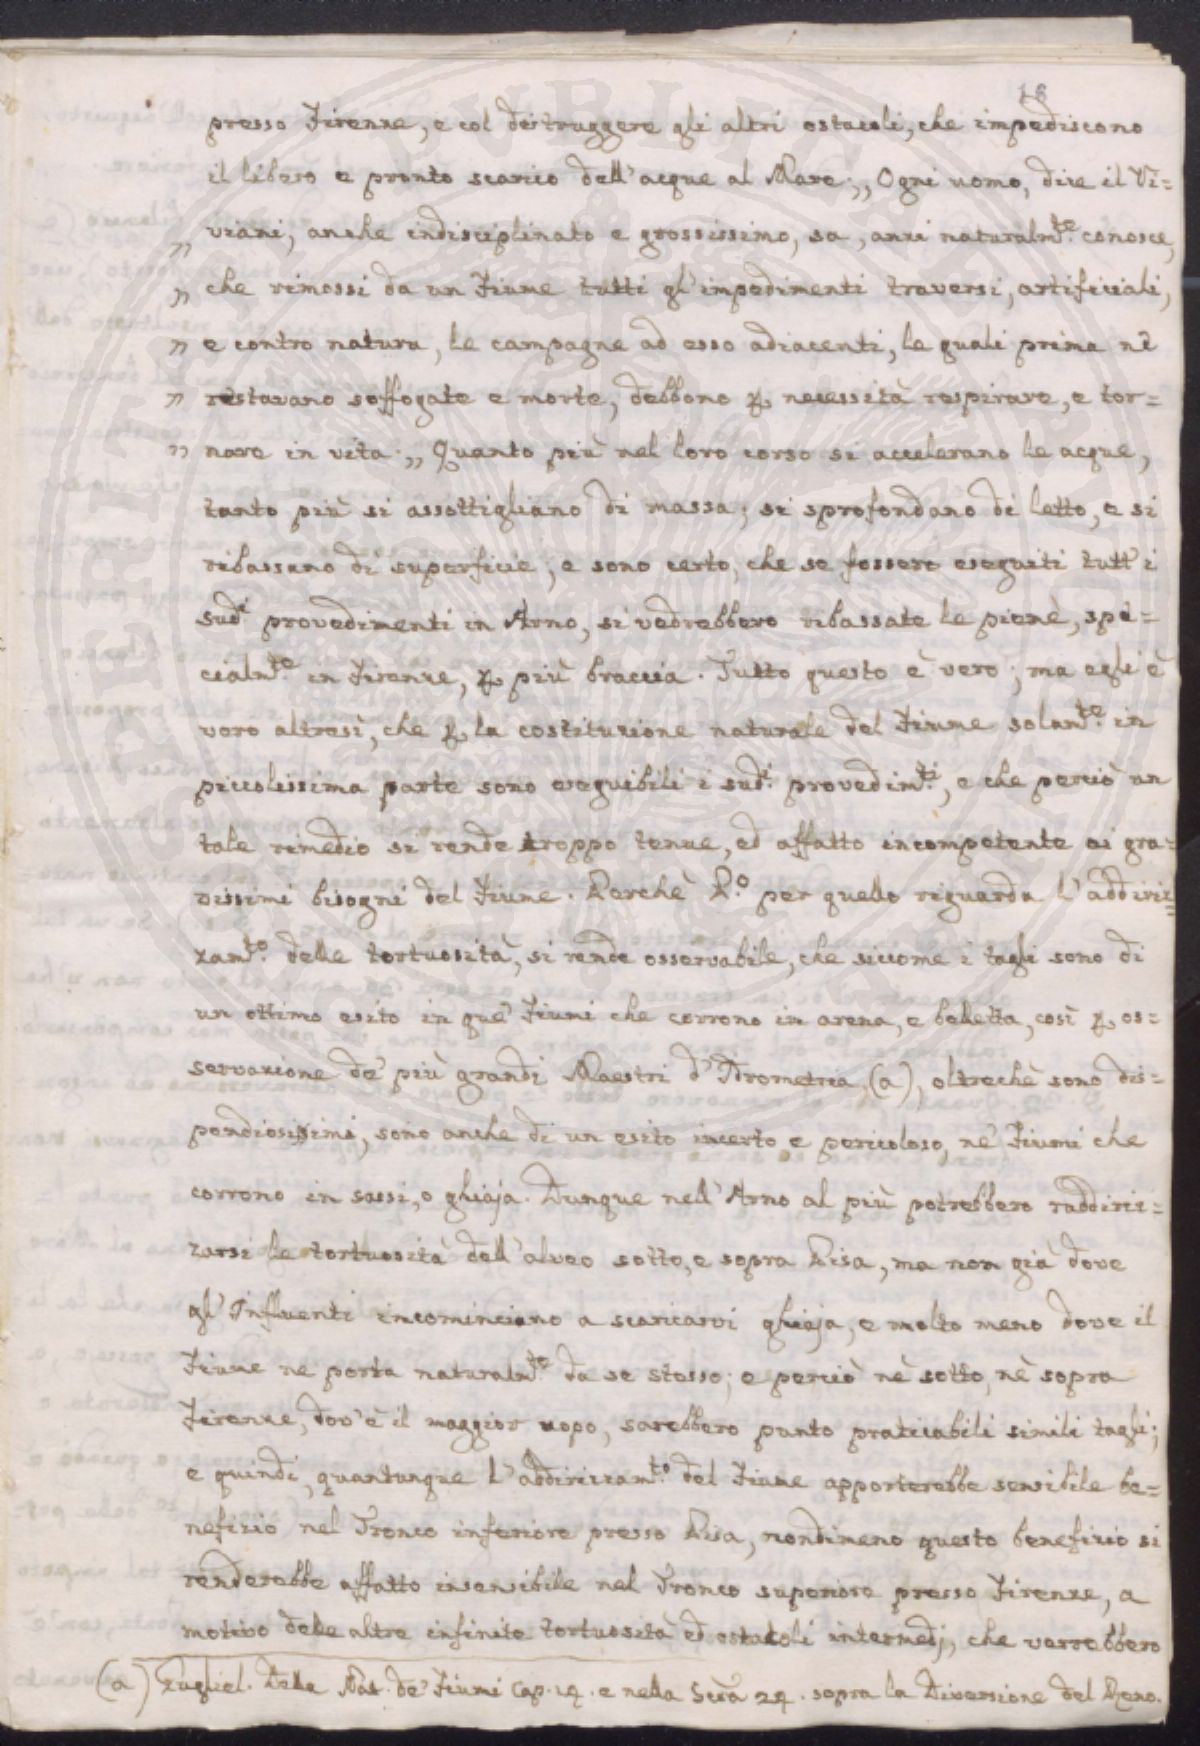 18
presso Firenze, e col distruggere gli altri ostacoli, che impediscono
il libero e pronto scarico dell'acque al Mare: „ Ogni uomo, dice il Vi=
„ viani, anche indisciplinato e grossissimo, sa, anzi naturalm.te conosce,
„ che rimossi da un Fiume tutti gl'impedimenti traversi, artificiali,
„ e contro natura, le campagne ad esso adiacenti, le quali prima ne
„ restavano soffogate e morte, debbono p necessità respirare, e tor=
„ nare in vita. „ Quanto più nel loro corso si accelerano le acque,
tanto più si assottigliano di massa; si sprofondano di letto, e si
ribassano di superficie; e sono certo, che se fossero eseguiti tutt'i
sud.i provedimenti in Arno, si vedrebbero ribassate le piene, spe=
cialm.te in Firenze, p più braccia. Tutto questo è vero; ma egli è
vero altresì, che p la costituzione naturale del Fiume solam.te in
piccolissima parte sono eseguibili i sud.i provedim.ti, e che perciò un
tale rimedio si rende troppo tenue, ed affatto incompetente ai gra=
vissimi bisogni del Fiume. Perchè P.o per quello riguarda l'addiriz=
zam.to delle tortuosità, si rende osservabile, che siccome i tagli sono di
un ottimo esito in que' Fiumi che corrono in arena, e belletta, così p os=
servazione de' più grandi Maestri d'Idrometria, (a), oltrechè sono dis=
pendiosissimi, sono anche di un esito incerto e pericoloso, ne' Fiumi che
corrono in sassi, o ghiaja. Dunque nell'Arno al più potrebbero raddiriz=
zarsi le tortuosità dell'alveo sotto, e sopra Pisa, ma non già dove
gl'Influenti incominciano a scaricarvi ghiaja, e molto meno dove il
Fiume ne porta naturalm.te da se stesso; e perciò nè sotto, nè sopra
Firenze, dov'è il maggior uopo, sarebbero punto praticabili simili tagli;
e quindi, quantunque l'addirizzam.to del Fiume apporterebbe sensibile be=
nefizio nel Tronco inferiore presso Pisa, nondimeno questo benefizio si
renderebbe affatto insensibile nel Tronco superiore presso Firenze, a
motivo delle altre infinite tortuosità ed ostacoli intermedj, che verrebbero
(a) Gugliel. Della Nat. de' Fiumi Cap. 14. e nella 24. sopra la Diversione del Reno.